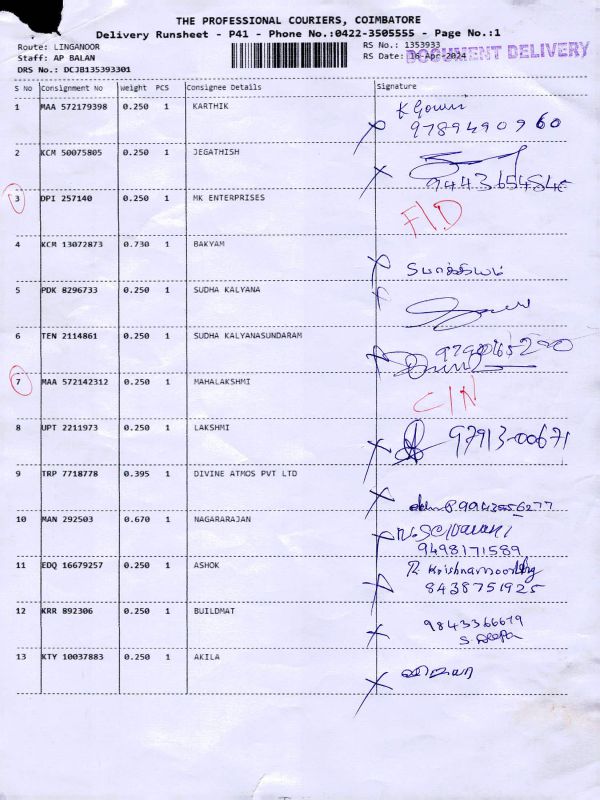 THE PROFESSIONAL COURIERS, COIMBATORE
Delivery Runsheet - P41 - Phone No.:0422-3505555 - Page No.:1
Route: LINGANOOR
RS No.: 1353933
Staff: AP BALAN
RS Date: 16-Apr-2024
DOCUMENT DELIVERY
DRS No.: DCJB135393301
S No Consignment No Weight PCS Consignee Details Signature
1 MAA 572179398 0.250 1 KARTHIK
K Gowri
9789490960
2 KCM 50075805 0.250 1 JEGATHISH
3 DPI 257140 0.250 1 MK ENTERPRISES
F/D
4 KCM 13072873 0.730 1 BAKYAM
5 PDK 8296733 0.250 1 SUDHA KALYANA
6 TEN 2114861 0.250 1 SUDHA KALYANASUNDARAM
7 MAA 572142312 0.250 1 MAHALAKSHMI
C/N
8 UPT 2211973 0.250 1 LAKSHMI
97913-00671
9 TRP 7718778 0.395 1 DIVINE ATMOS PVT LTD
9943556277
10 MAN 292503 0.670 1 NAGARARAJAN
9498171589
11 EDQ 16679257 0.250 1 ASHOK
R Krishnamoorthy
8438751925
12 KRR 892306 0.250 1 BUILDMAT
9843366679
S. Deepa
13 KTY 10037883 0.250 1 AKILA